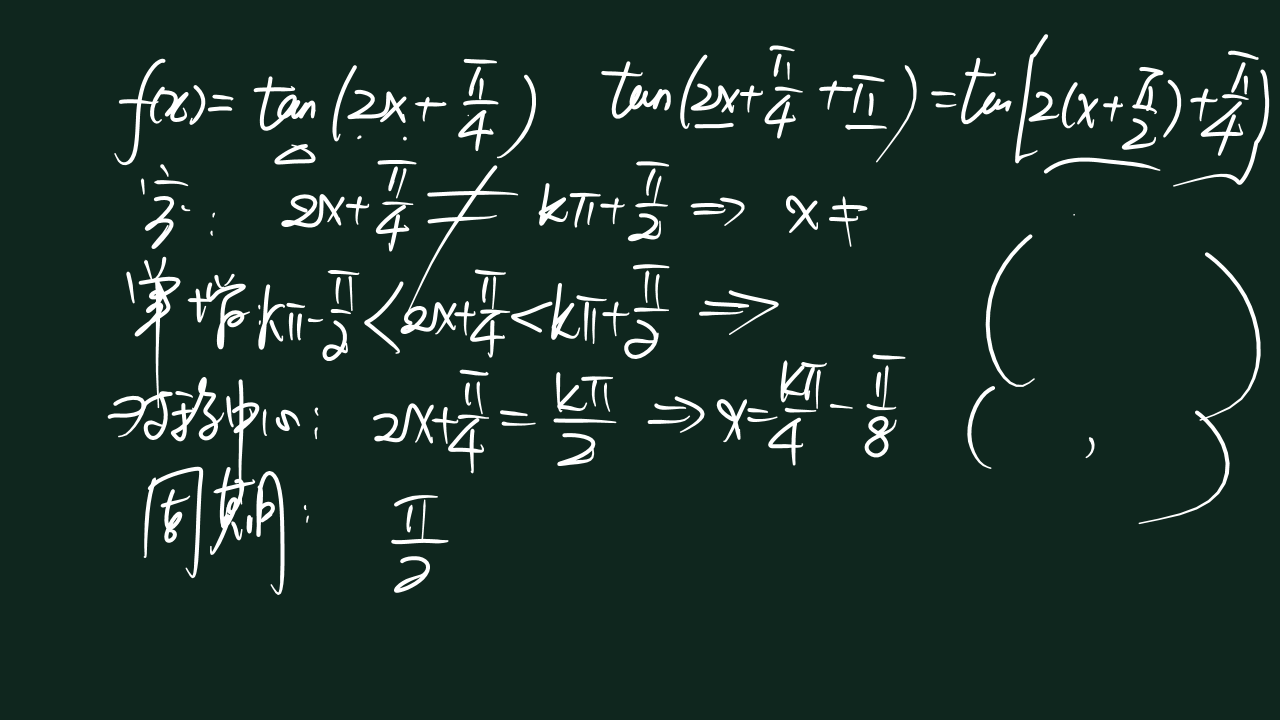 f(x)=tan(2x+π/4) tan(2x+π/4+π)=tan[2(x+π/2)+π/4]
定: 2x+π/4≠kπ+π/2⇒x≠
单增:kπ-π/2<2x+π/4<kπ+π/2⇒ ( )
对称中心: 2x+π/4=kπ/2⇒x=kπ/4-π/8 ( , )
周期: π/2